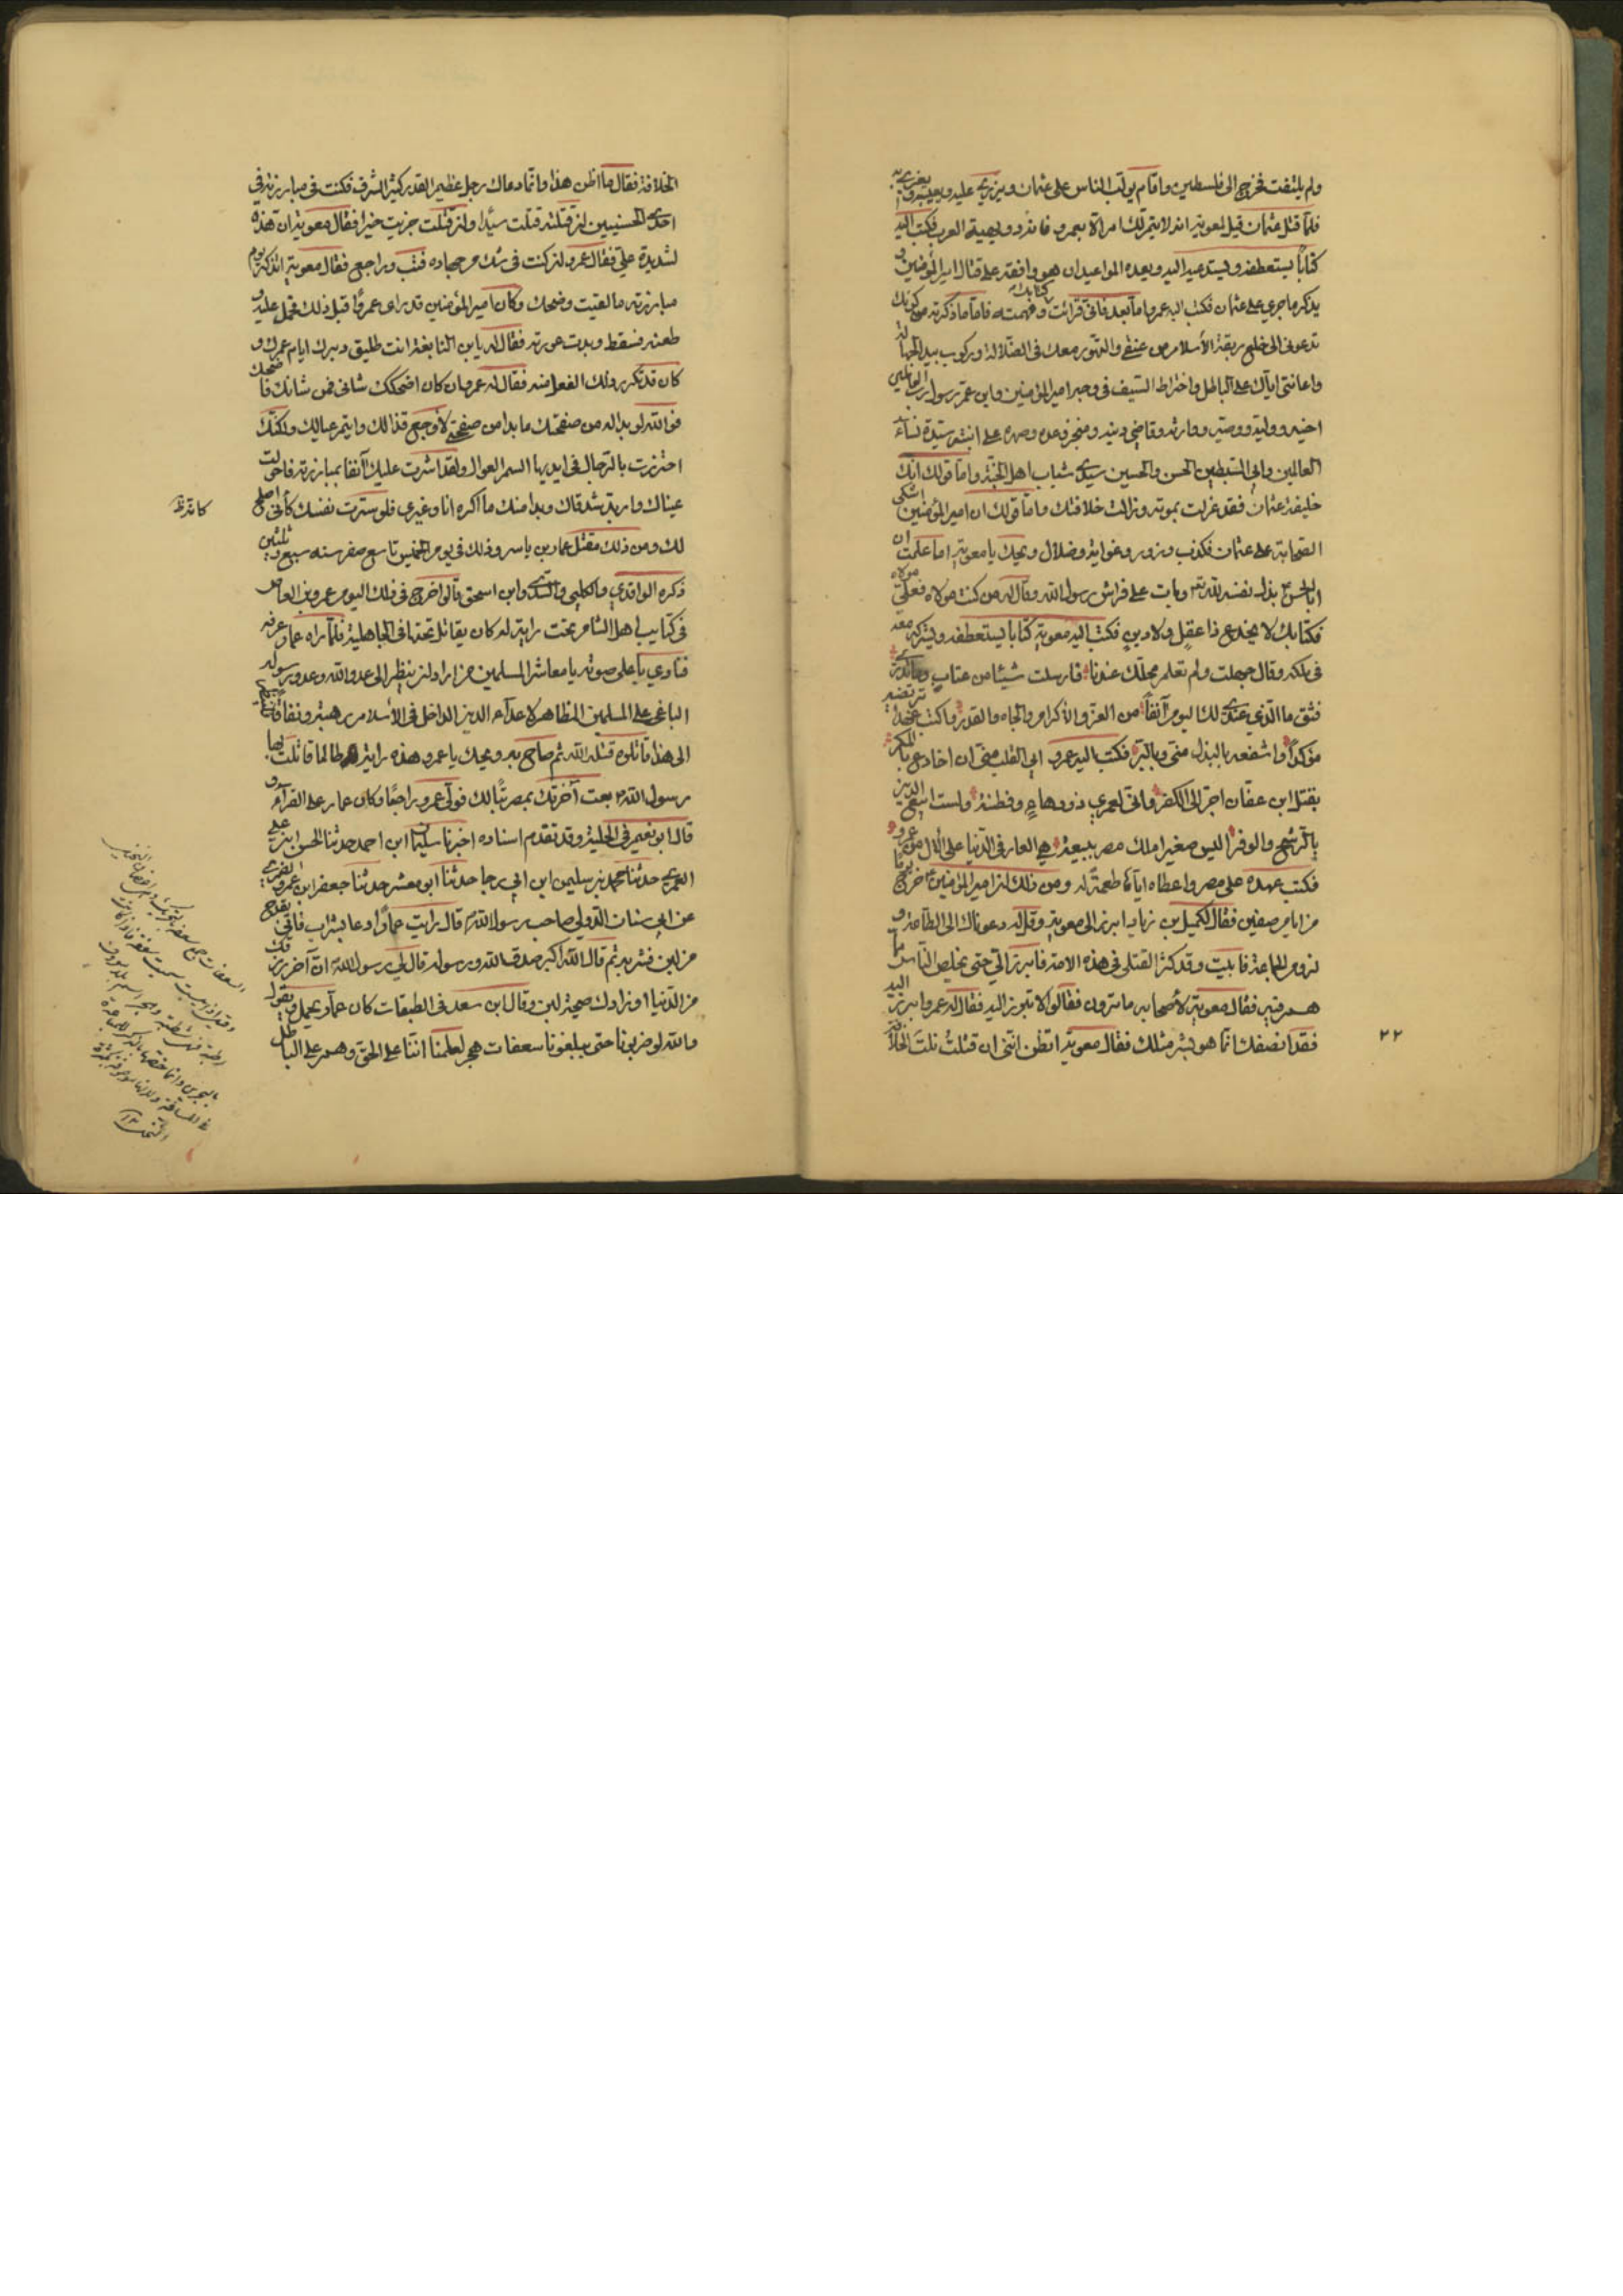 ولم يلتفت فخرج الى فلسطين واقام يولّب الناس على عثمان ويزرى عليه ويعيبه ويغرى به
فلمّا قتل عثمان قيل لمعوية انه لا يتم لك امر الا بعمرو فانه دويهية العرب فكتب اليه
كتابا يستعطفه ويستدعيه اليه ويعده المواعيد ان هو وافقه على قتال امير المؤمنين و
يذكر ما جرى على عثمان فكتب اليه عمرو اما بعد فانى قرات كتابك وفهمته فاما ما ذكرته من كونك
تدعونى الى خلع ربقة الأسلام من عنقى والتهور معك فى الضلالة وركوب بيد الجهالة
واعانتى اياك على الباطل واختراط السيف فى وجه امير المؤمنين وابن عم رسول رب العالمين
اخيه ووليه ووصيه ووارثه وقاضى دينه ومنجز وعده وصهره على ابنته سيدة نساء
العالمين وابي السبطين الحسن والحسين سيدى شباب اهل الجنة واما قولك انك
خليفة عثمان فقد عزلت بموته وزالت خلافتك واما قولك ان امير المؤمنين اشلى
الصحابة على عثمان فكذب وزور وغواية وضلال ويحك يا معوية اما علمت ان
ابا الحسن بذل نفسه لله تع وبات على فراش رسول الله وقال له من كنت مولاه فعلى مولاه
فكتابك لا يخدع ذا عقل ولا دين فكتب اليه معوية كتابا يستعطفه ويشركه معه
فى ملكه وقال جهلت ولم تعلم محلك عندنا فارسلت شيئا من عتاب وما تدرى
فثق ما الذى عندى لك اليوم آنفا من العز والأكرام والجاه والقدر واكتب عهدا ترتضيه
مؤكدا واشفعه بالبذل منى وبالبر فكتب اليه عمرو ابى القلب منى ان اخادع بالمكر
بقتل ابن عفان اجر الى الكفر وانى لعمرى ذو دهاء وفطنة ولست ابيع الدين
بالرشح والوفر اليس صغيرا ملك مصر ببيعة هى العار فى الدنيا على الال من عمرو
فكتب عهده على مصر واعطاه اياها طعمة له ومن ذلك ان امير المؤمنين خرج يوما
من ايام صفين فقال لكميل بن زياد ابرز الى معوية وقل له دعوناك الى الطاعة و
لزوم الجماعة فابيت وقد كثر القتلى فى هذه الامة فابرز الى حتى يخلص الناس مما
هم فيه فقال معوية لأصحابه ما ترون فقالوا لا تبرز اليه فقال له عمرو ابرز اليه
فقد انصفك انما هو بشر مثلك فقال معوية اتظن اننى ان قتلت نلت الخلافة
٢٢
الخلافة فقال ما اظن هذا وانما دعاك رجل عظيم القدر كثير الشرف فكنت فى مبارزته فى
احدى الحسنيين ان قتلته قتلت سيّدا وان قتلت جزيت خيرا فقال معوية ان هذه
لشديدة على فقال عمرو ان كنت فى شك من جهاده فتب وراجع فقال معوية اتذكر يوم
مبارزته ما لقيت وضحك وكان امير المؤمنين قد راى عمروا قبل ذلك فحمل عليه و
طعنه فسقط وبدت عورته فقال له يا ابن النابغة انت طليق دبرك ايام عمرك و
كان قد تكرر ذلك الفعل منه فقال له عمرو ان كان اضحكك شانى فمن شانك فاضحك
فوالله لو بدا له من صفحتك ما بدا من صفحتى لأوجع قذالك وايتم عيالك ولكنك
احترزت بالرجال فى ايديها السمر العوال ولقد اشرت عليك آنفا بمبارزته فاحولت
عيناك واربد شدقاك وبدا منك ما اكره انا وغيرى فلو سترت نفسك كان اصلح
كانظ
لك ومن ذلك مقتل عمار بن ياسر وذلك فى يوم الخميس تاسع صفر سنه سبع وثلثين
ذكره الواقدى والكلبى والسدى وابن اسحق قالوا خرج فى ذلك اليوم عمرو بن العاص
فى كتايب اهل الشام تحت راية له كان يقاتل تحتها فى الجاهلية فلما راه عمار عرفه
فنادى باعلى صوته يا معاشر المسلمين من اراد ان ينظر الى عدو الله وعدو رسوله
الباغى على المسلمين المظاهر لاعدآء الدين الداخل فى الأسلام رهبة ونفاقا
الى هذا قاتلوه قتله الله ثم صاح به ويحك يا عمرو هذه راية طالما قاتلت بها
رسول الله بعت آخرتك بمصر تبا لك فولى عمرو راجعا وكان عمار على الفرآء
قال ابو نعيم فى الحلية وقد تقدم اسناده اخبرنا سليمان ابن احمد حدثنا الحسن ابن على
العمرى حدثنا محمد بن سليمن ابن ابى رجا حدثنا ابو معشر حدثنا جعفر ابن عمرو الضمرى
عن ابى سنان الدولى صاحب رسول الله قال رايت عمارا دعا بشراب فاتى بقدح
من لبن فشربه ثم قال الله اكبر صدق الله ورسوله قال لى رسول الله ان آخر رزقك
من الدنيا او زادك صيحة لبن وقال ابن سعد فى الطبقات كان عمار يحمل ويقول
والله لو ضربونا حتى يبلغونا سعفات هجر لعلمنا اننا على الحق وهم على الباطل
السعفات جمع سعفة بالتحريك